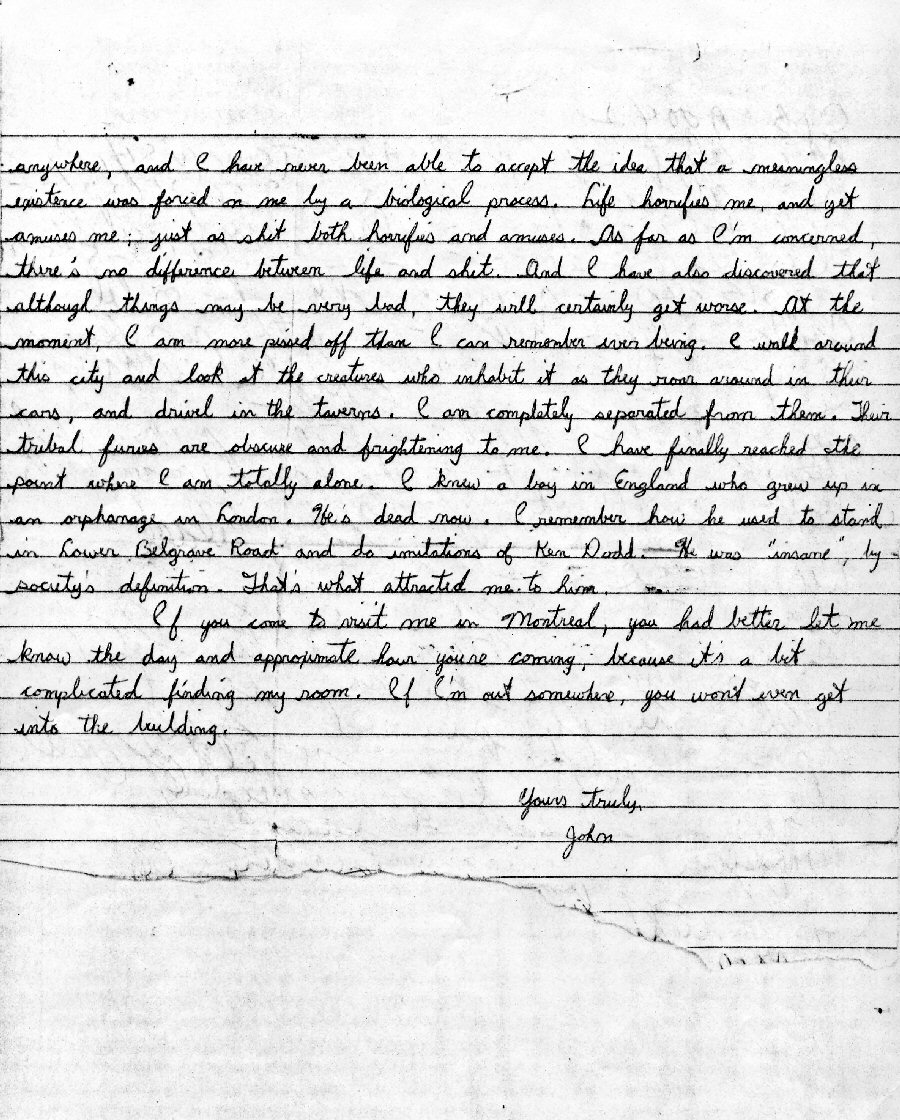 anywhere, and I have never been able to accept the idea that a meaningless
existence was forced on me by a biological process. Life horrifies me, and yet
amuses me; just as shit both horrifies and amuses. As far as I'm concerned,
there's no difference between life and shit. And I have also discovered that
although things may be very bad, they will certainly get worse. At the
moment, I am more pissed off than I can remember ever being. I walk around
this city and look at the creatures who inhabit it as they roar around in their
cars, and drivel in the taverns. I am completely separated from them. Their
tribal furies are obscure and frightening to me. I have finally reached the
point where I am totally alone. I knew a boy in England who grew up in
an orphanage in London. He's dead now. I remember how he used to stand
in Lower Belgrave Road and do imitations of Ken Dodd. He was "insane", by
society's definition. That's what attracted me to him.
If you come to visit me in Montreal, you had better let me
know the day and approximate hour you're coming, because it's a bit
complicated finding my room. If I'm out somewhere, you won't even get
into the building.
Yours truly,
John